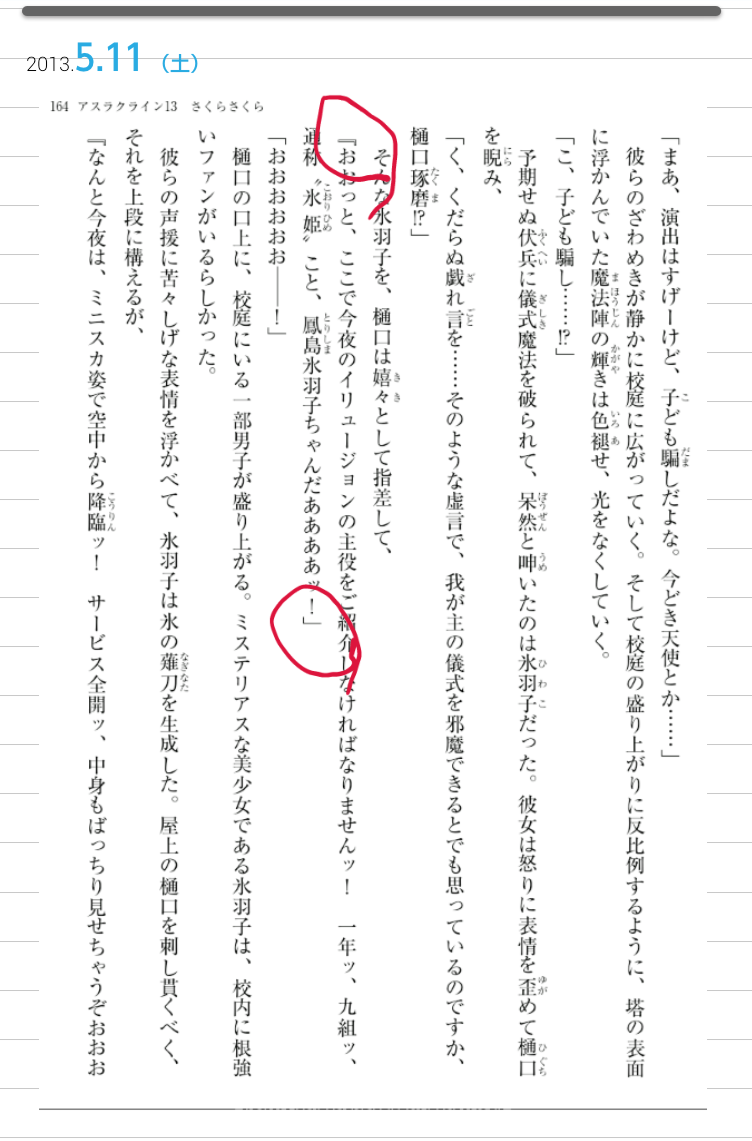 2013.5.11（土）
164 アスラクライン13 さくらさくら
「まあ、演出はすげーけど、子ども騙しだよな。今どき天使とか……」
彼らのざわめきが静かに校庭に広がっていく。そして校庭の盛り上がりに反比例するように、塔の表面
に浮かんでいた魔法陣の輝きは色褪せ、光をなくしていく。
「こ、子ども騙し……⁉」
予期せぬ伏兵に儀式魔法を破られて、呆然と呻いたのは氷羽子だった。彼女は怒りに表情を歪めて樋口
を睨み、
「く、くだらぬ戯れ言を……そのような虚言で、我が主の儀式を邪魔できるとでも思っているのですか、
樋口琢磨⁉」
そんな氷羽子を、樋口は嬉々として指差して、
『おおっと、ここで今夜のイリュージョンの主役をご紹介しなければなりませんッ！　一年ッ、九組ッ、
通称〝氷姫〟こと、鳳島氷羽子ちゃんだああああッ！」
「おおおおおお――！」
樋口の口上に、校庭にいる一部男子が盛り上がる。ミステリアスな美少女である氷羽子は、校内に根強
いファンがいるらしかった。
彼らの声援に苦々しげな表情を浮かべて、氷羽子は氷の薙刀を生成した。屋上の樋口を刺し貫くべく、
それを上段に構えるが、
『なんと今夜は、ミニスカ姿で空中から降臨ッ！　サービス全開ッ、中身もばっちり見せちゃうぞおおお